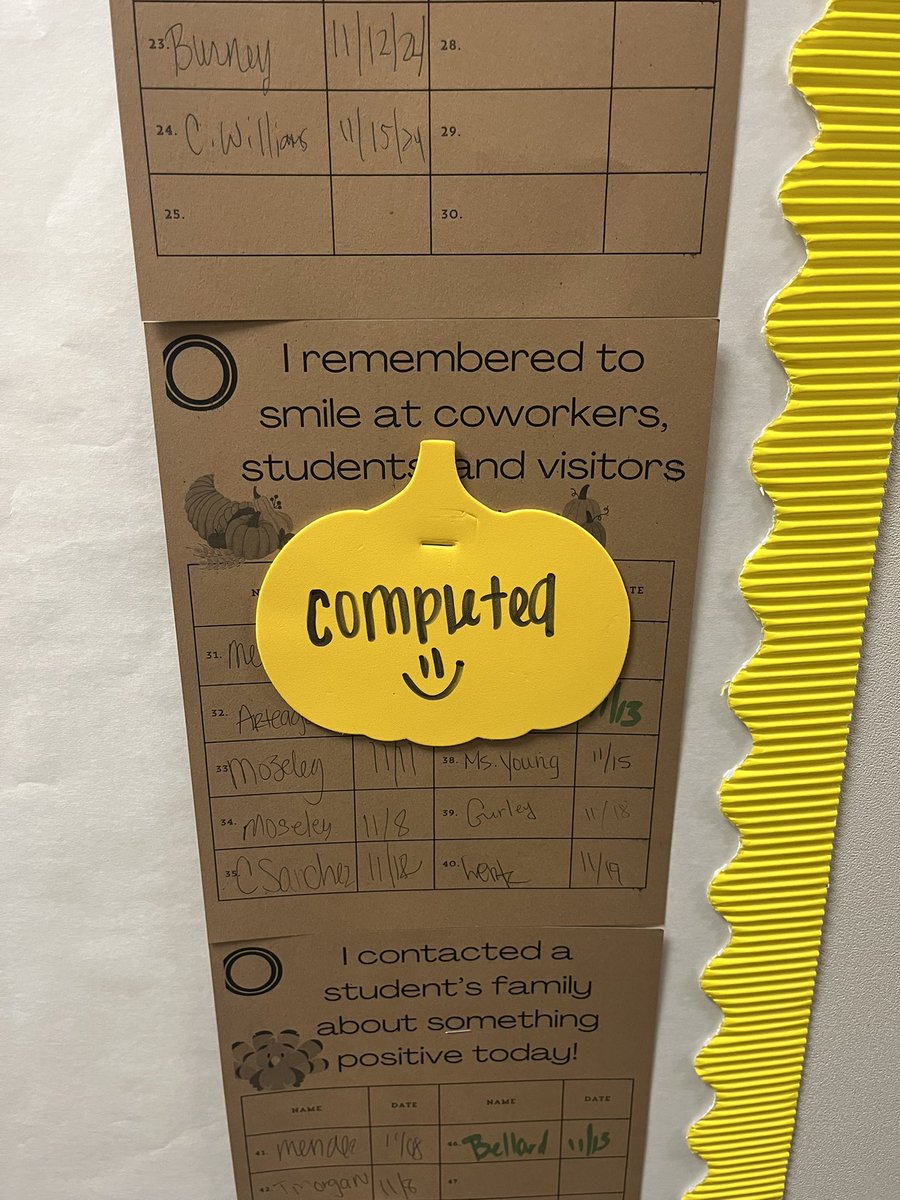 23. Burney 11/12/24 28.
24. C. Williams 11/15/24 29.
25. 30.
I remembered to
smile at coworkers,
students and visitors
completed
31. Me
32. Arteag /13
33 Mozeley 11/11 38. Ms. Young 11/15
34. Moseley 11/8 39. Gurley 11/18
35. C Sanchez 11/18 40. Lentz 11/19
I contacted a
student's family
about something
positive today!
NAME DATE NAME DATE
41. Mendez 11/08 46. Bellard 11/13
42. T Morgan 11/8 47